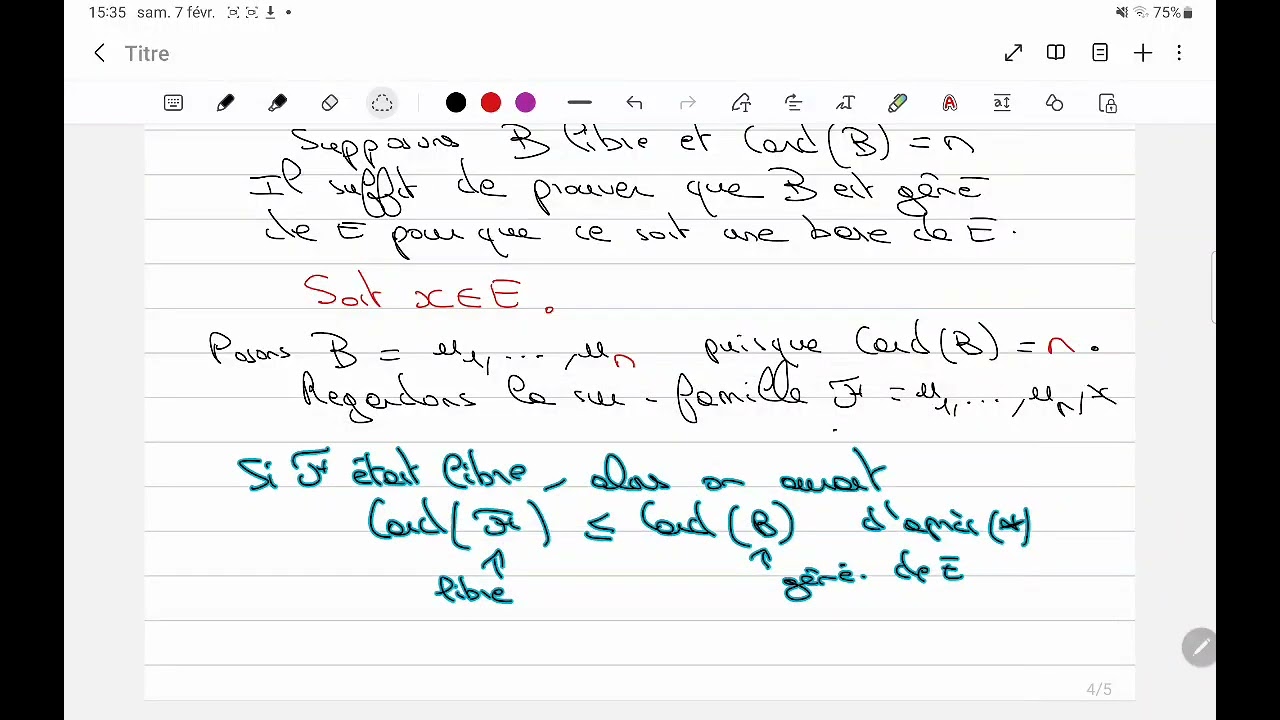 15:35 sam. 7 févr. 75%
Titre
Supposons B libre et Card(B) = n
Il suffit de prouver que B est géné
de E pour que ce soit une base de E.
Soit x ∈ E.
Posons B = u₁, ..., uₙ puisque Card(B) = n.
Regardons la sur-famille F = u₁, ..., uₙ, x
Si F était libre, alors on aurait
Card(F) ≤ Card(B) d'après (*)
↑ ↑
libre géné. de E
4/5